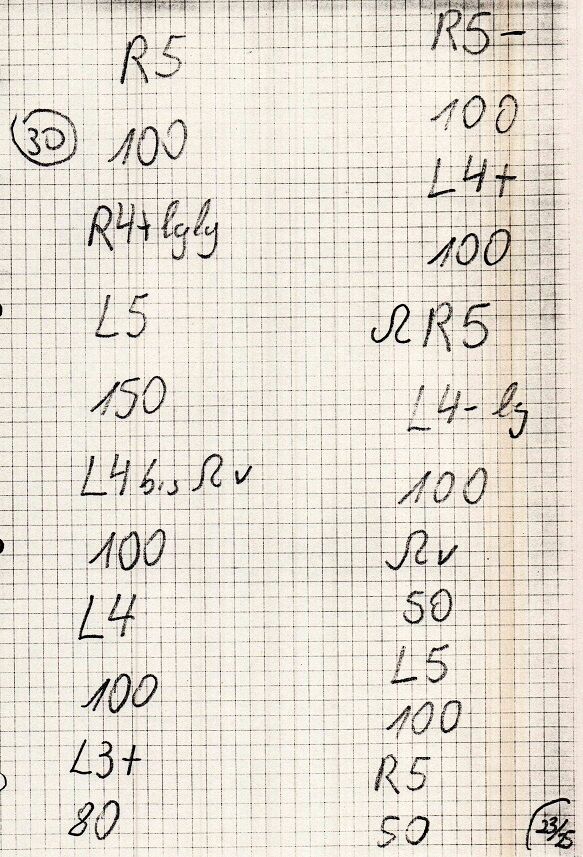 R5
30 100
R4+ lg lg
L5
150
L4 bis Ω v
100
L4
100
L3+
80
R5-
100
L4+
100
Ω R5
L4- lg
100
Ω v
50
L5
100
R5
50
23/25